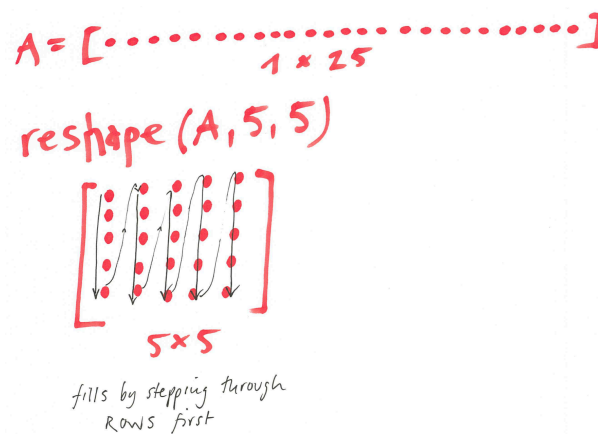 A = [ ························· ]
1 × 25
reshape (A, 5, 5)
5 × 5
fills by stepping through
ROWS first